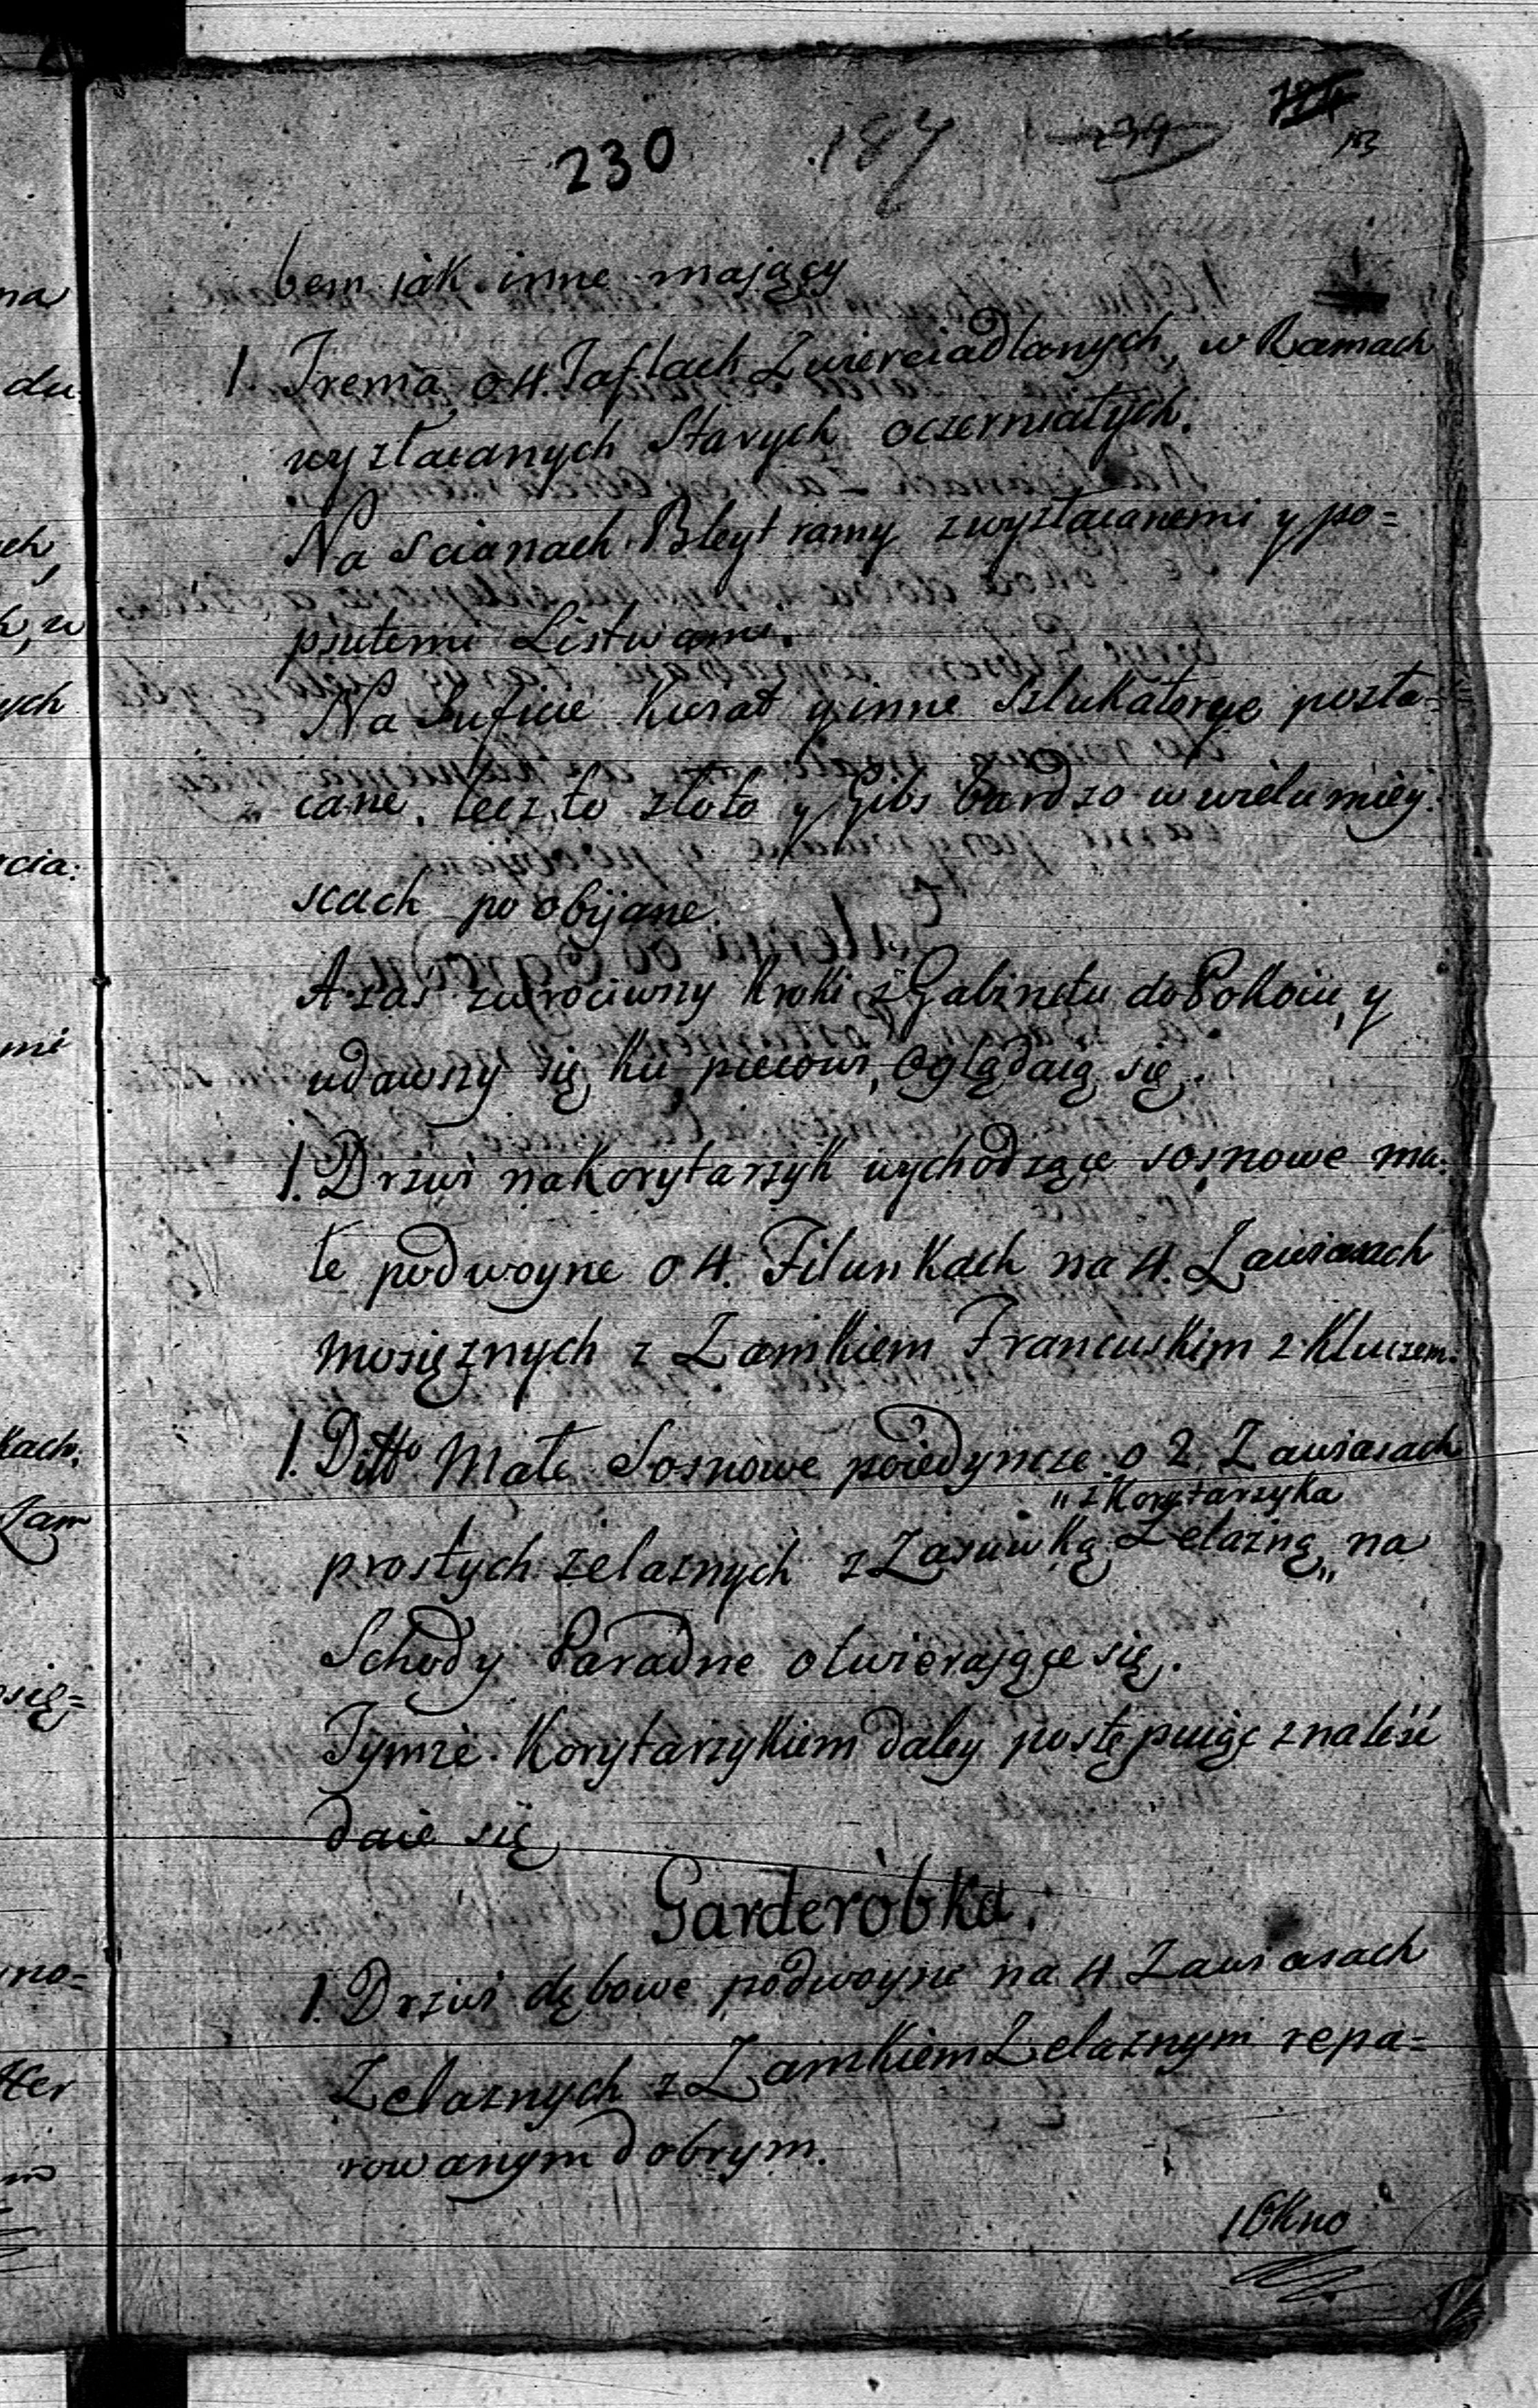 230 187 239
183
bem jak inne mający
1. Trema o 4. Taflach Zwierciadlanych, w Ramach
wyzłacanych Starych oczerniałych.
Na Scianach Bleyt ramy z wyzłacanemi y po=
psutemi Listwami.
Na Suficie Kwiat y inne Sztukatorye pozła=
cane, lecz to złoto y Gibs bardzo w wielu miey:
scach poobijane.
A zaś zwrociwszy kroki z Gabinetu do Pokoiu, y
udawszy się ku piecowi, Oglądaią się.
1. Drzwi na Korytarzyk wychodzące sosnowe ma:
łe podwoyne o 4. Filunkach na 4. Zawiasach
mosięznych z Zamkiem Francuskim z Kluczem.
1. Ditto Małe Sosnowe poiedyncze o 2. Zawiasach
" z Korytarzyka
prostych zelaznych z Zasuwką Zelazną „ na
Schody Paradne otwierające się.
Tymze Korytarzykiem daley postępuiąc znaleść
daie się
Garderòbka.
1. Drzwi dębowe podwoyne na 4 Zawiasach
Zelaznych z Zamkiem Zelaznym repa=
rowanym dobrym.
1 Okno
na
du
ych
cia:
mi
kach.
Zam
się=
no=